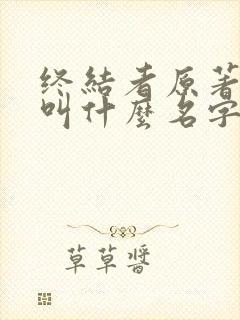 终結者原著
叫什麽名字
草草醬